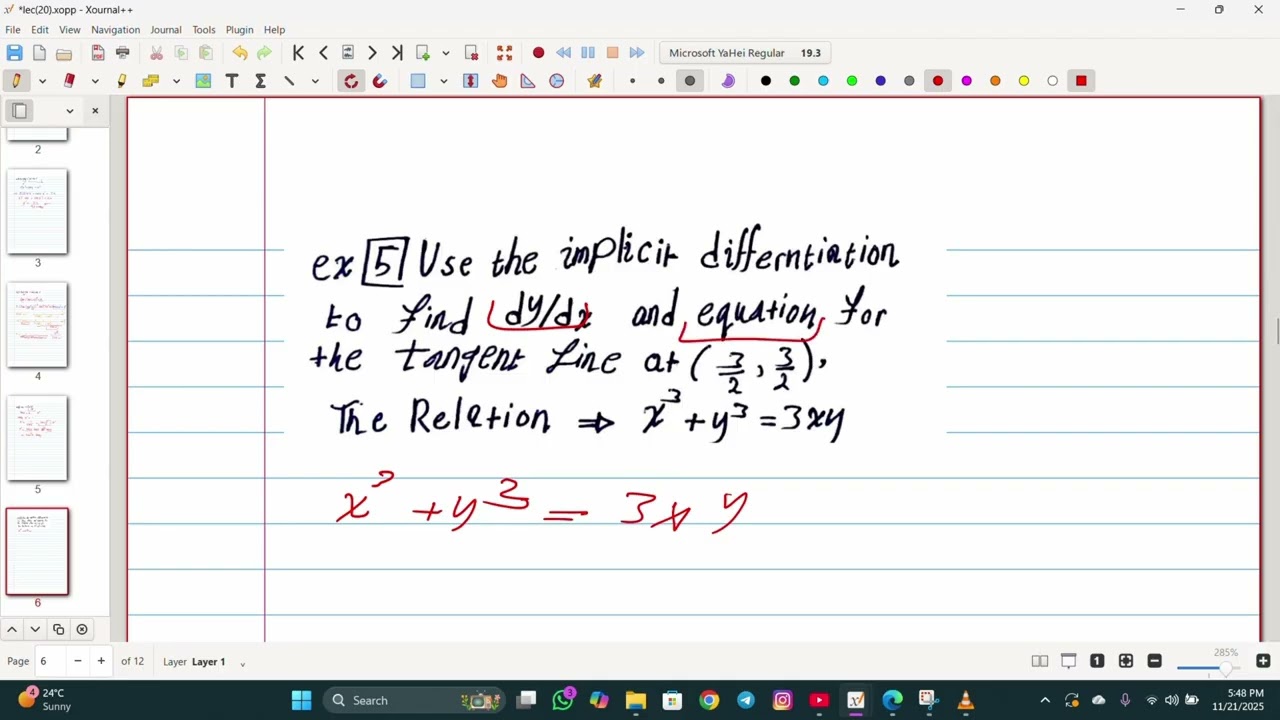 *lec(20).xopp - Xournal++
File Edit View Navigation Journal Tools Plugin Help
Microsoft YaHei Regular 19.3
2
3
4
5
6
ex 5 Use the implicit differntiation
to find dy/dx and equation for
the tangent line at (3/2, 3/2),
The Relation ⇒ x³ + y³ = 3xy
x³ + y³ = 3x y
Page 6 of 12 Layer Layer 1
285%
4
24°C
Sunny
Search
3
5:48 PM
11/21/2025